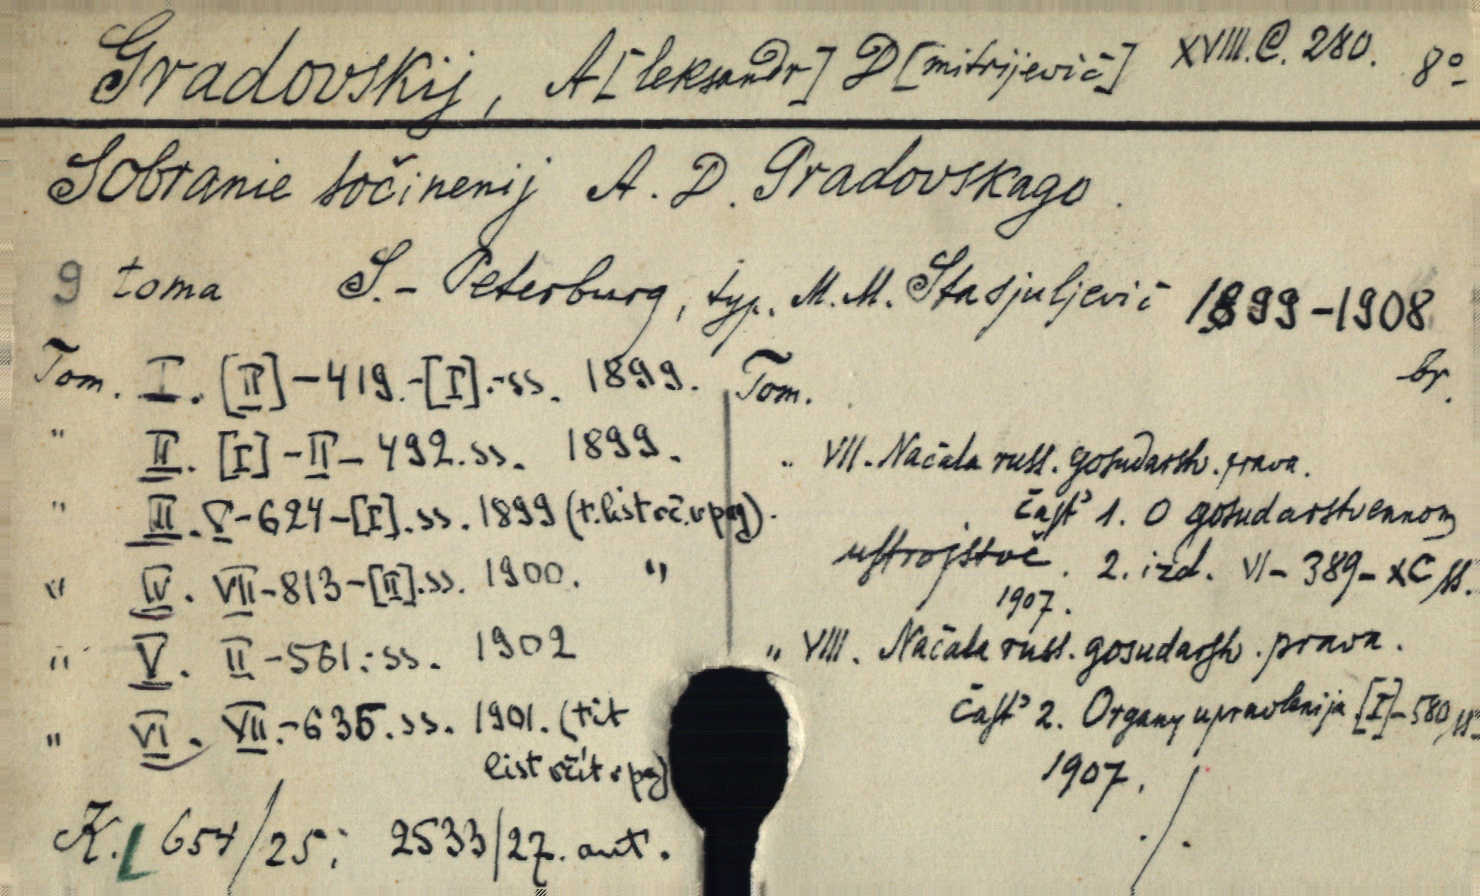 Gradovskij, A[leksandr] D[mitrijevič] XVIII.C. 280. 8°
Sobranie sočinenij A. D. Gradovskago.
9 toma S.- Peterburg, typ. M. M. Stasjuljevič 1899-1908
br.
Tom. I. [II]-419.-[I].-ss. 1899.
" II. [I]-II-492.ss. 1899.
" III. V-624-[I].ss. 1899 (t.list vč. v pag).
" IV. VII-813-[II].ss. 1900. "
" V. II-561.-ss. 1902
" VI. VII.-635.ss. 1901. (tit
list včít v pag)
Tom.
" VII. Načala russ. gosudarstv. prava.
Častʹ 1. O gosudarstvennom
ustrojstvě. 2. izd. VI-389-XC ss.
1907.
" VIII. Načala russ. gosudarstv. prava.
Častʹ 2. Organy upravlenija [I]-580 ss.
1907. ./.
K. L 654/25; 2533/27. ant.